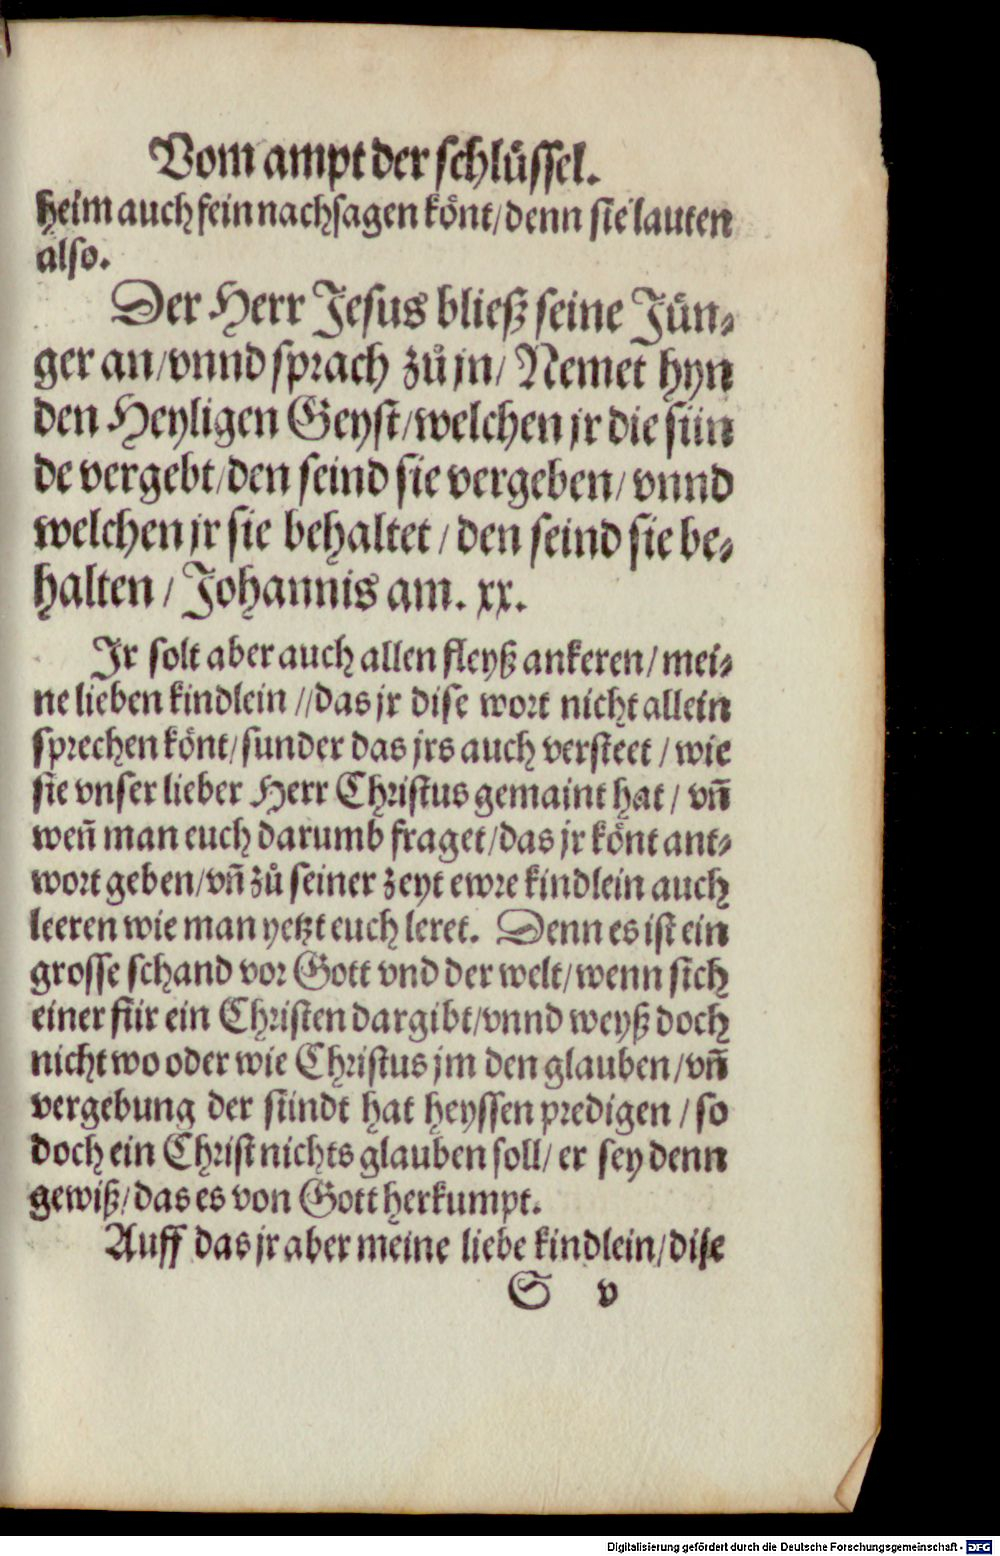 Vom ampt der schlüssel.
heim auch fein nachsagen könt/ denn sie lauten
also.
Der Herr Jesus bließ seine Jün⸗
ger an/ vnnd sprach zů jn/ Nemet hyn
den Heyligen Geyst/ welchen jr die sün
de vergebt/ den seind sie vergeben/ vnnd
welchen jr sie behaltet/ den seind sie be⸗
halten/ Johannis am. xx.
Jr solt aber auch allen fleyß ankeren/ mei⸗
ne lieben kindlein // das jr dise wort nicht allein
sprechen könt/ sunder das jrs auch versteet/ wie
sie vnser lieber Herr Christus gemaint hat/ vñ
weñ man euch darumb fraget/ das jr könt ant⸗
wort geben/ vñ zů seiner zeyt ewre kindlein auch
leeren wie man yetzt euch leret. Denn es ist ein
grosse schand vor Gott vnd der welt/ wenn sich
einer für ein Christen dargibt/ vnnd weyß doch
nicht wo oder wie Christus jm den glauben/ vñ
vergebung der sündt hat heyssen predigen/ so
doch ein Christ nichts glauben soll/ er sey denn
gewiß/ das es von Gott herkumpt.
Auff das jr aber meine liebe kindlein/ dise
S v
Digitalisierung gefördert durch die Deutsche Forschungsgemeinschaft - DFG